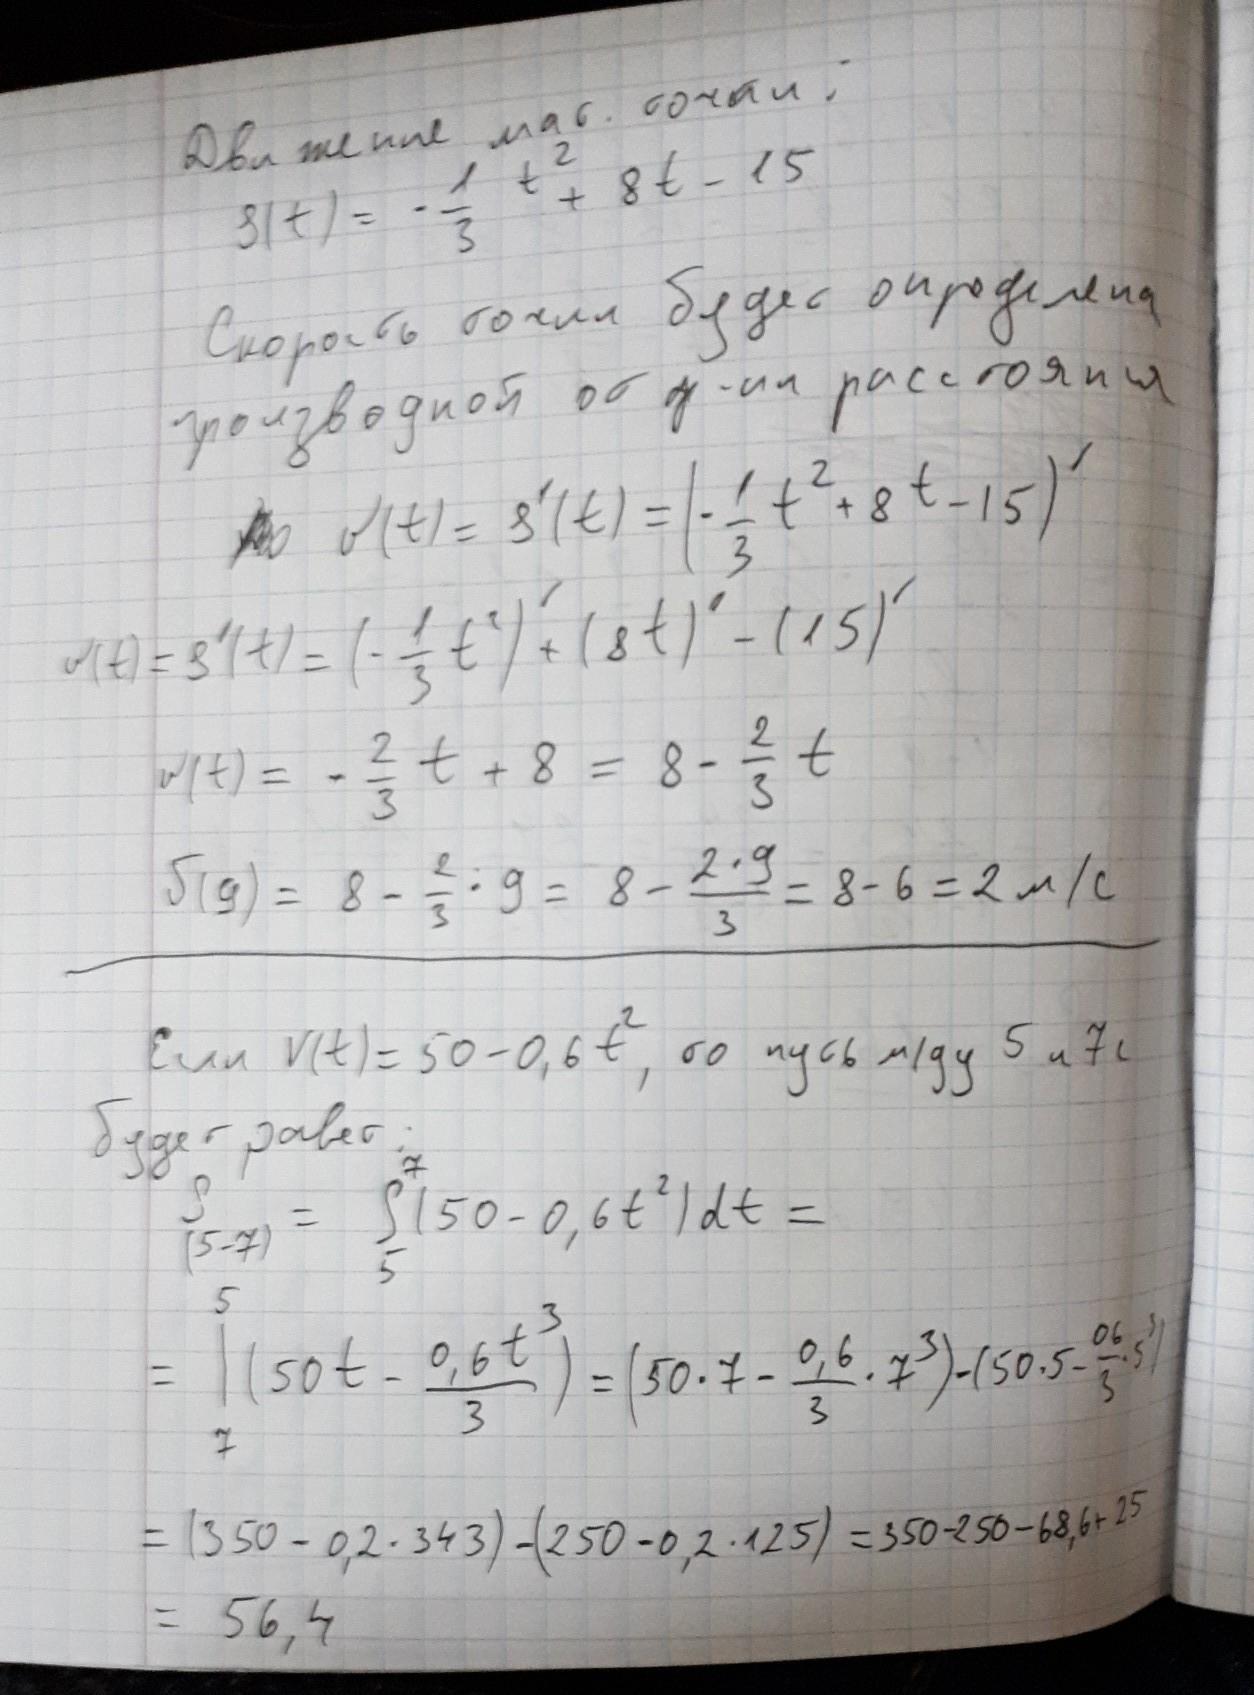 Движение мат. точки:
S(t) = -1/3 t² + 8t - 15
Скорость точки будет определена
производной от ф-ии расстояния
v(t) = S'(t) = (-1/3 t² + 8t - 15)'
v(t) = S'(t) = (-1/3 t²)' + (8t)' - (15)'
v(t) = -2/3 t + 8 = 8 - 2/3 t
V(9) = 8 - 2/3 · 9 = 8 - 2·9/3 = 8 - 6 = 2 м/с
Если V(t) = 50 - 0,6t², то путь м/ду 5 и 7с
будет равен:
S(5-7) = ∫₅⁷ (50 - 0,6t²)dt =
= ⁵|₇ (50t - 0,6t³/3) = (50·7 - 0,6/3 · 7³) - (50·5 - 06/3 · 5³)
= (350 - 0,2·343) - (250 - 0,2·125) = 350-250-68,6+25
= 56,4